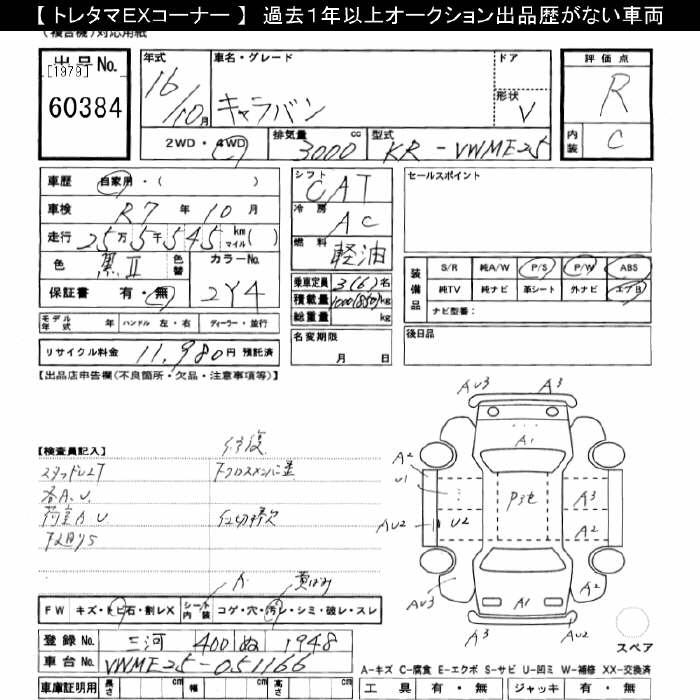 【 トレタマEXコーナー 】 過去１年以上オークション出品歴がない車両
(複合機)対応用紙
出品No. [1979] 60384
年式 16/10月
車名・グレード キャラバン
ドア
形状 V
2WD・4WD
排気量 3000 cc
型式 KR-VWME25
評価点 R
内装 C
車歴 自家用・( )
車検 R7 年 10 月
走行 25万5千545 km マイル( )
色 黒II 色替
カラーNo. 2Y4
保証書 有・無
シフト CAT
冷房 AC
燃料 軽油
乗車定員 3(6)名
積載量 1000(850)kg
総重量 kg
セールスポイント
装備品
S/R 純A/W P/S P/W ABS
純TV 純ナビ 革シート 外ナビ エアB
ナビ型番:
モデル年式 年 ハンドル 左・右 ディーラー・並行
名変期限 月 日
後日品
リサイクル料金 11,980円 預託済
【出品店申告欄(不良箇所・欠品・注意事項等)】
【検査員記入】
修復
スタッドレスT
各A.U
荷室A U
下廻りS
AU3 A3
A2 U1 A1
P3セ
AU2 U2 A3
A2
AU3 A1 A2
A3 AU2
スペア
FW キズ・ヒビ石・割レX
シート内装 コゲ・穴・汚レ・シミ・破レ・スレ
登録No. 三河 400 ぬ 1948
車台No. VWME25-051166
A-キズ C-腐食 E-エクボ S-サビ U-凹ミ W-補修 XX-交換済
車庫証明用 長さ cm 幅 cm 高さ cm
工具 有・無 ジャッキ 有・無